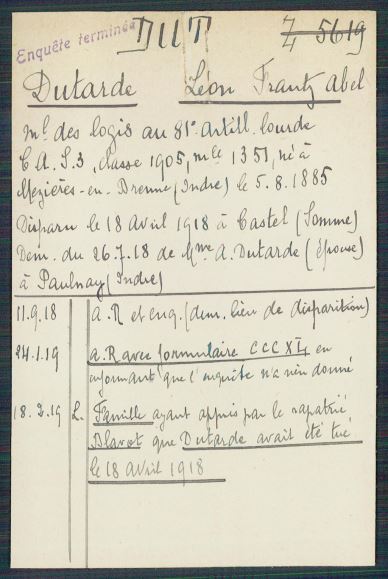 Enquête terminée
DUT
Z 5619
Dutarde Léon Frantz Abel
mal des logis au 81e artill. lourde
C.A.S.3, classe 1905, mle 1351, né à
Mezières-en-Brenne (Indre) le 5.8.1885
Disparu le 18 Avril 1918 à Castel (Somme)
Dem. du 26.7.18 de Mme A. Dutarde (épouse)
à Paulnay (Indre)
11.9.18 A.R et enq. (dem. lieu de disparition)
24.1.19 A.R avec formulaire CCCXL, en
informant que l'enquête n'a rien donné
18.3.19 L. Famille ayant appris par le rapatrié
Blavot que Dutarde avait été tué
le 18 Avril 1918